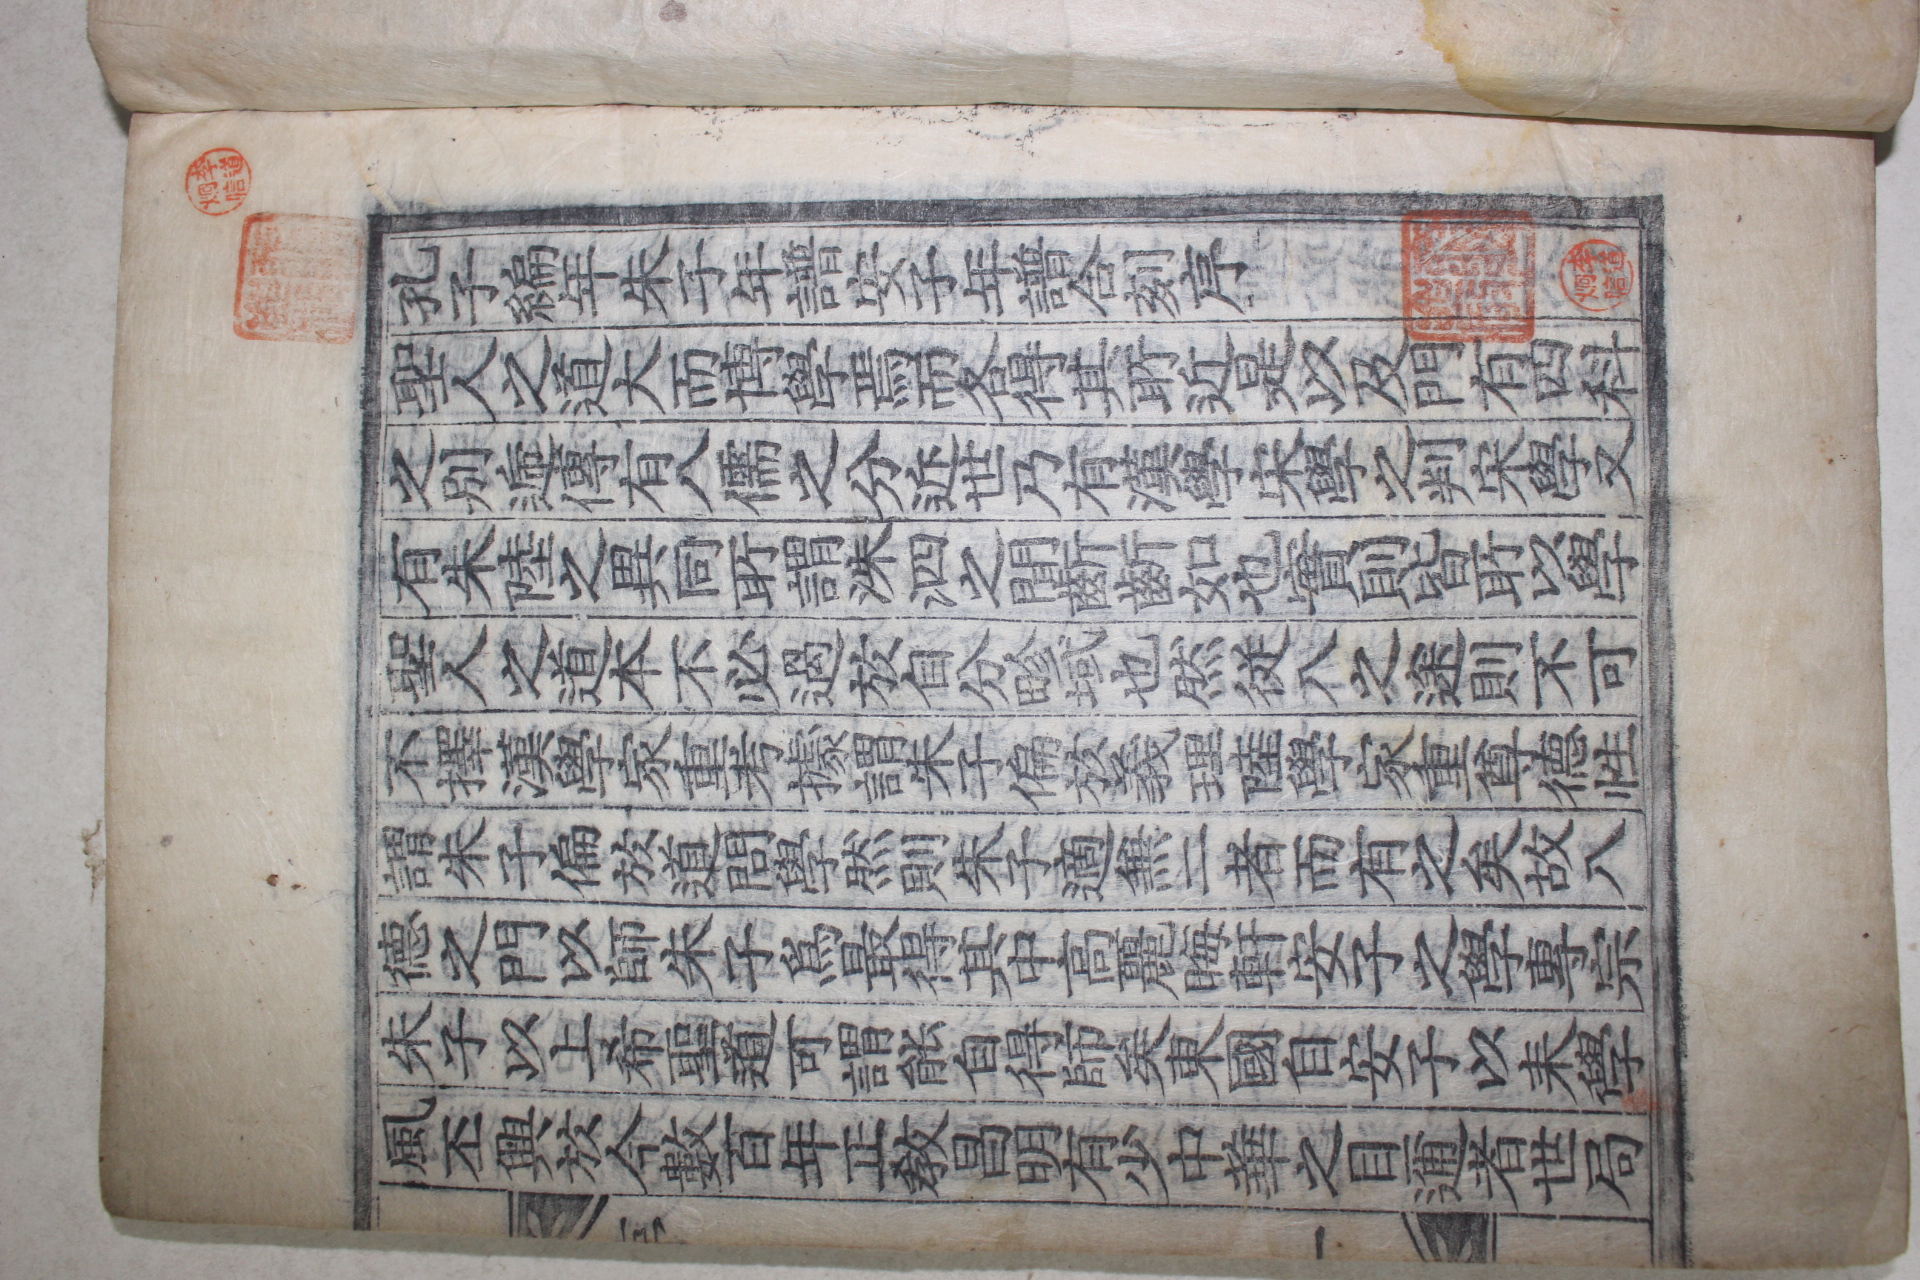 孔子編年朱子年譜安子年譜合刻序
聖人之道大而博學焉而各得其所近是以及門有四科
之別遞傳有八儒之分近世乃有漢學宋學之判宋學又
有朱陸之異同所謂洙泗之間斷斷如也實則皆所以學
聖人之道本不必過於自分畛域也然從入之途則不可
不擇漢學家重考據謂朱子偏於義理陸學家重尊德性
謂朱子偏於道問學然則朱子適兼二者而有之矣故入
德之門以師朱子爲最得其中高麗晦軒安子之學專宗
朱子以上希聖道可謂能自得師矣東國自安子以来學
風丕興於今數百年正敎昌明有少中華之目邇者世局
序
一
李道炯信
李道炯信